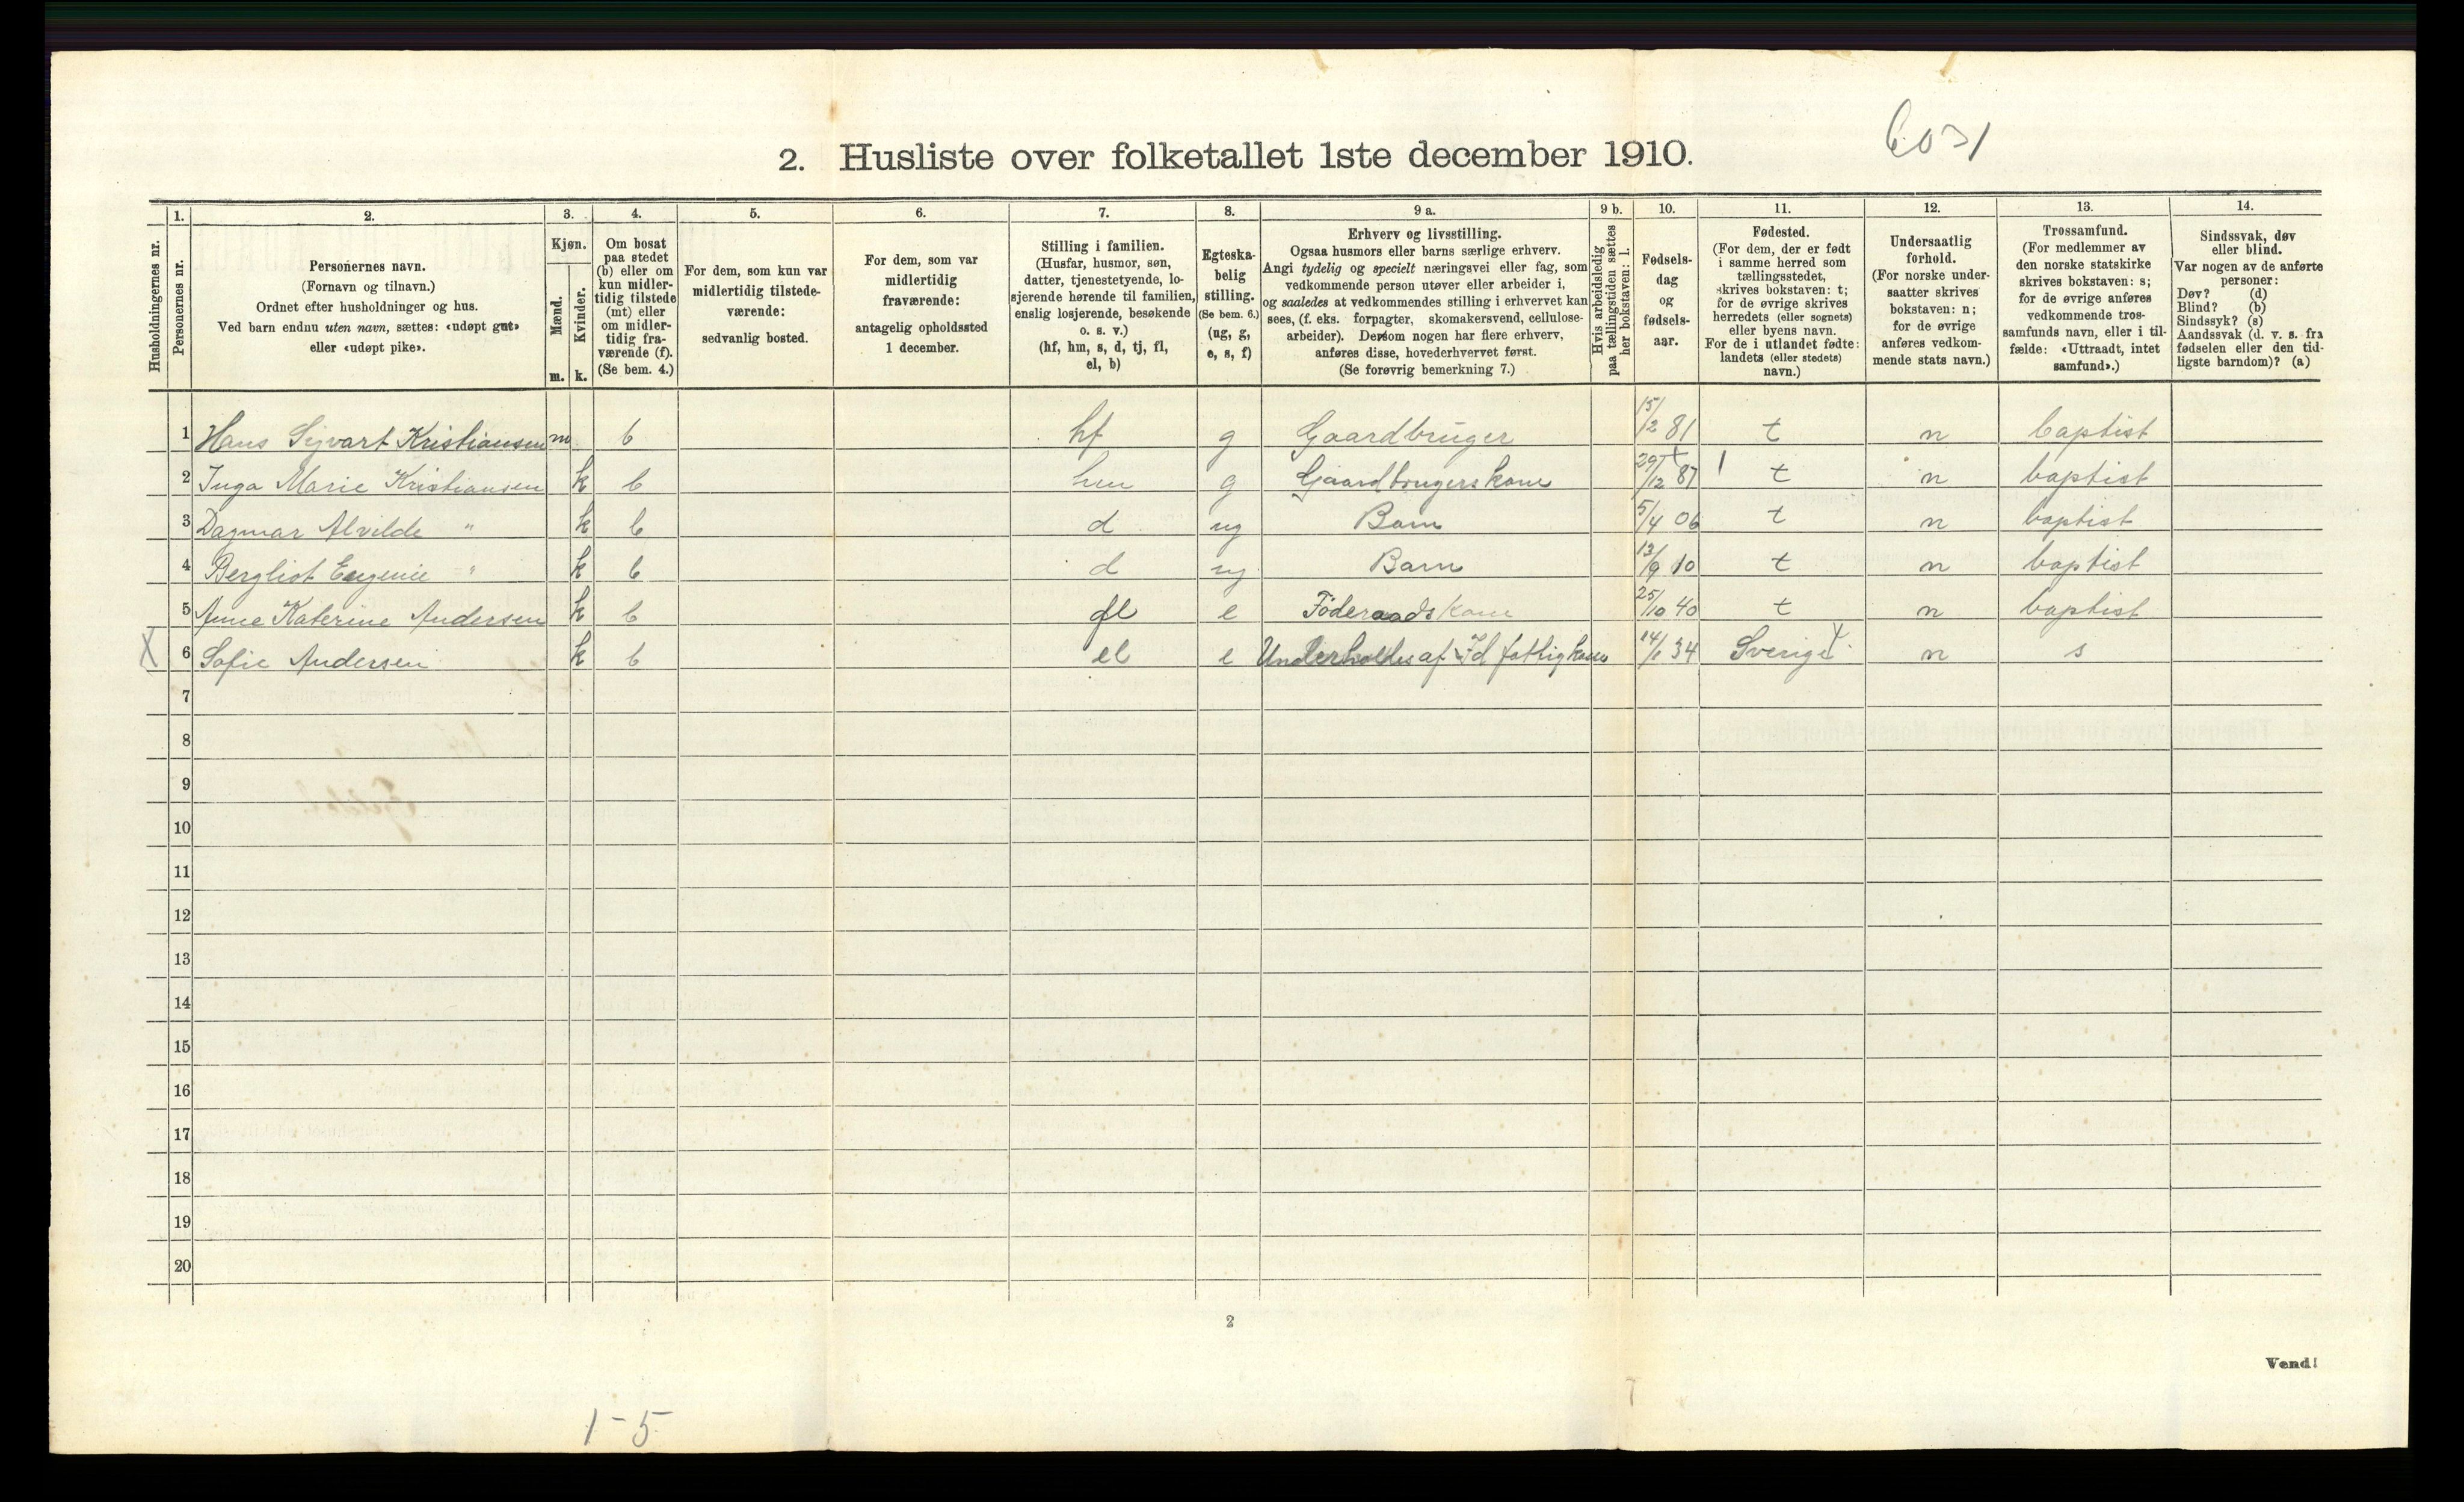 6031
2. Husliste over folketallet 1ste december 1910.
Husholdningernes nr.
1.
Personernes nr.
2.
Personernes navn.
(Fornavn og tilnavn.)
Ordnet efter husholdninger og hus.
Ved barn endnu uten navn, sættes: «udøpt gut»
eller «udøpt pike».
3.
Kjøn.
Mænd.
Kvinder.
m. k.
4.
Om bosat
paa stedet
(b) eller om
kun midler-
tidig tilstede
(mt) eller
om midler-
tidig fra-
værende (f).
(Se bem. 4.)
5.
For dem, som kun var
midlertidig tilstede-
værende:
sedvanlig bosted.
6.
For dem, som var
midlertidig
fraværende:
antagelig opholdssted
1 december.
7.
Stilling i familien.
(Husfar, husmor, søn,
datter, tjenestetyende, lo-
sjerende hørende til familien,
enslig losjerende, besøkende
o. s. v.)
(hf, hm, s, d, tj, fl,
el, b)
8.
Egteska-
belig
stilling.
(Se bem. 6.)
(ug, g,
e, s, f)
9 a.
Erhverv og livsstilling.
Ogsaa husmors eller barns særlige erhverv.
Angi tydelig og specielt næringsvei eller fag, som
vedkommende person utøver eller arbeider i,
og saaledes at vedkommendes stilling i erhvervet kan
sees, (f. eks. forpagter, skomakersvend, cellulose-
arbeider). Dersom nogen har flere erhverv,
anføres disse, hovederhvervet først.
(Se forøvrig bemerkning 7.)
9 b.
Hvis arbeidsledig
paa tællingstiden sættes
her bokstaven: l.
10.
Fødsels-
dag
og
fødsels-
aar.
11.
Fødested.
(For dem, der er født
i samme herred som
tællingsstedet,
skrives bokstaven: t;
for de øvrige skrives
herredets (eller sognets)
eller byens navn.
For de i utlandet fødte:
landets (eller stedets)
navn.)
12.
Undersaatlig
forhold.
(For norske under-
saatter skrives
bokstaven: n;
for de øvrige
anføres vedkom-
mende stats navn.)
13.
Trossamfund.
(For medlemmer av
den norske statskirke
skrives bokstaven: s;
for de øvrige anføres
vedkommende tros-
samfunds navn, eller i til-
fælde: «Uttraadt, intet
samfund».)
14.
Sindssvak, døv
eller blind.
Var nogen av de anførte
personer:
Døv? (d)
Blind? (b)
Sindssyk? (s)
Aandssvak (d. v. s. fra
fødselen eller den tid-
ligste barndom)? (a)
1 Hans Sigvart Kristiansen m b hf g Gaardbruger 15/2 81 t n baptist
2 Inga Marie Kristiansen k b hm g Gaardbrugerskone 29/12 87 t n baptist
3 Dagmar Alvilde " k b d ug Barn 5/4 06 t n baptist
4 Bergliot Eugenie " k b d ug Barn 13/9 10 t n baptist
5 Anne Katerine Andersen k b fl e Föderaadskone 25/10 40 t n baptist
X 6 Sofie Andersen k b el e Underholdes af Id fattigkasse 14/1 34 Sverige n s
7
8
9
10
11
12
13
14
15
16
17
18
19
20
2
Vend!
1-5